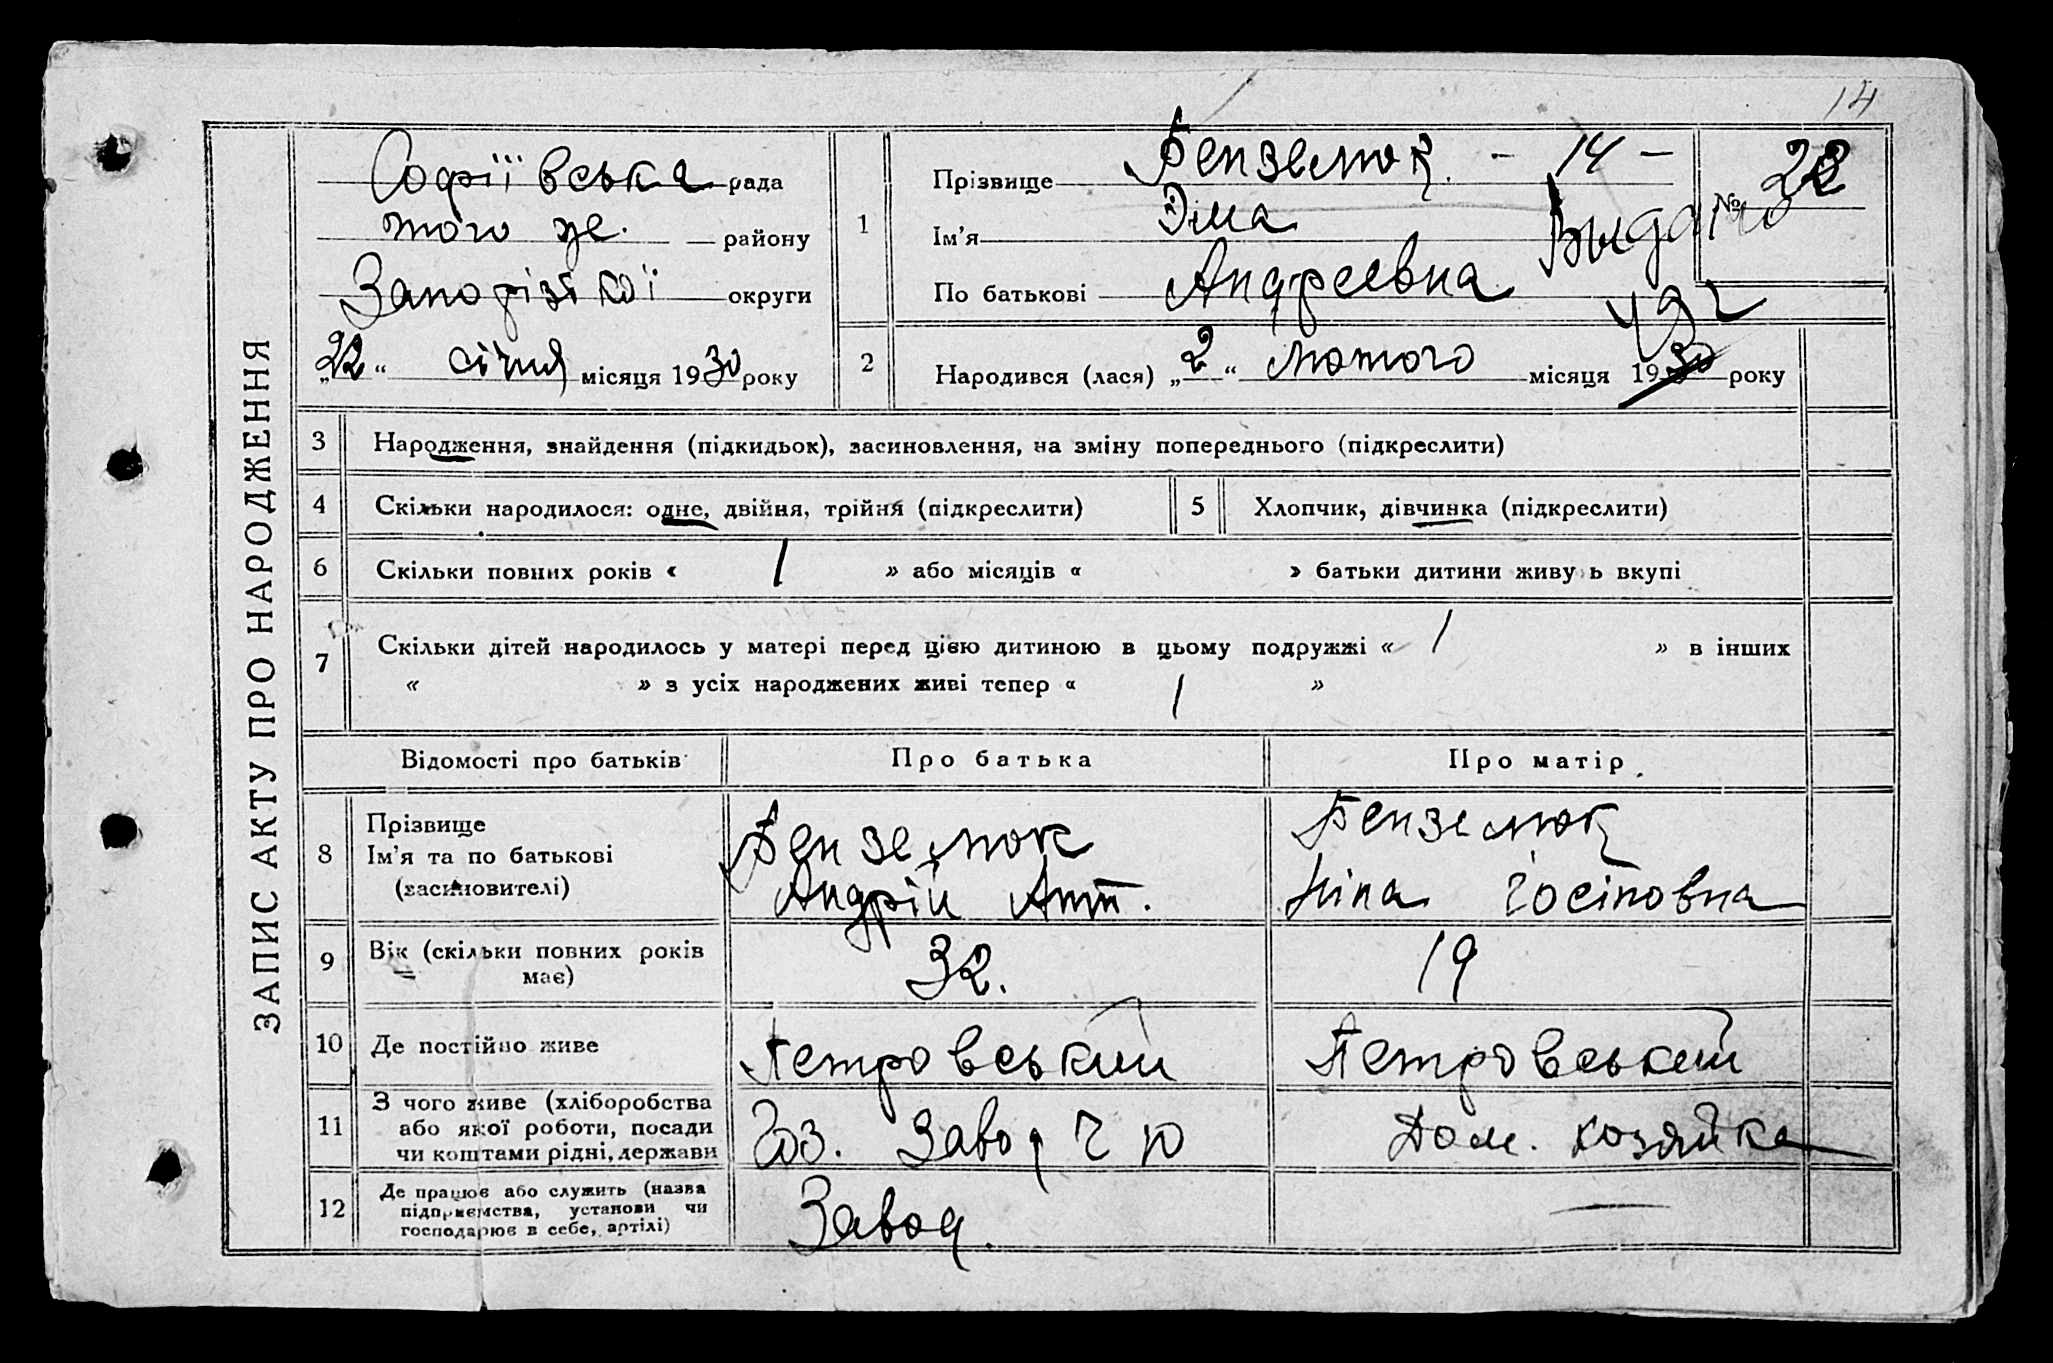 14
ЗАПИС АКТУ ПРО НАРОДЖЕННЯ
Софіївська рада
того же району
Запорізької округи
„22“ січня місяця 1930 року
1
Прізвище Бенземюк - 14 -
№ 28
Ім'я Эма
Выдано
По батькові Андреевна
2
Народився (лася) „2“ лютого місяця 1930 року
3 Народження, знайдення (підкидьок), засиновлення, на зміну попереднього (підкреслити)
4 Скільки народилося: одне, двійня, трійня (підкреслити) 5 Хлопчик, дівчинка (підкреслити)
6 Скільки повних років « 1 » або місяців « » батьки дитини живуть вкупі
7 Скільки дітей народилось у матері перед цією дитиною в цьому подружжі « 1 » в інших
« » з усіх народжених живі тепер « 1 »
Відомості про батьків Про батька Про матір
8 Прізвище
Ім'я та по батькові
(засиновителі)
Бенземюк
Андрій Ант.
Бенземюк
Ніна Йосіповна
9 Вік (скільки повних років
має)
32. 19
10 Де постійно живе Петровський Петровський
11 З чого живе (хліборобства
або якої роботи, посади
чи коштами рідні, держави
Завод Дом. хозяйка
12 Де працює або служить (назва
підприємства, установи чи
господарює в себе, артілі)
Завод.